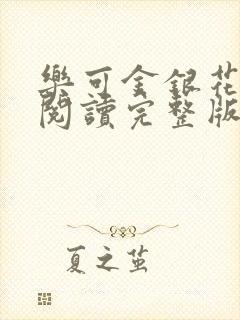 樂可金銀花
閱讀完整版
夏之茧